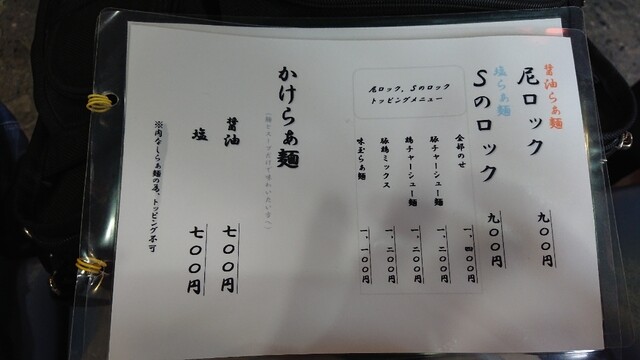 醤油らぁ麺
尼ロック 九〇〇円
塩らぁ麺
Sのロック 九〇〇円
尼ロック、Sのロック
トッピングメニュー
全部のせ 一、四〇〇円
豚チャーシュー麺 一、二〇〇円
鶏チャーシュー麺 一、二〇〇円
豚鶏ミックス 一、二〇〇円
味玉らぁ麺 一、一〇〇円
かけらぁ麺
(麺とスープだけで味わいたい方へ)
醤油 七〇〇円
塩 七〇〇円
※肉なしらぁ麺の為、トッピング不可